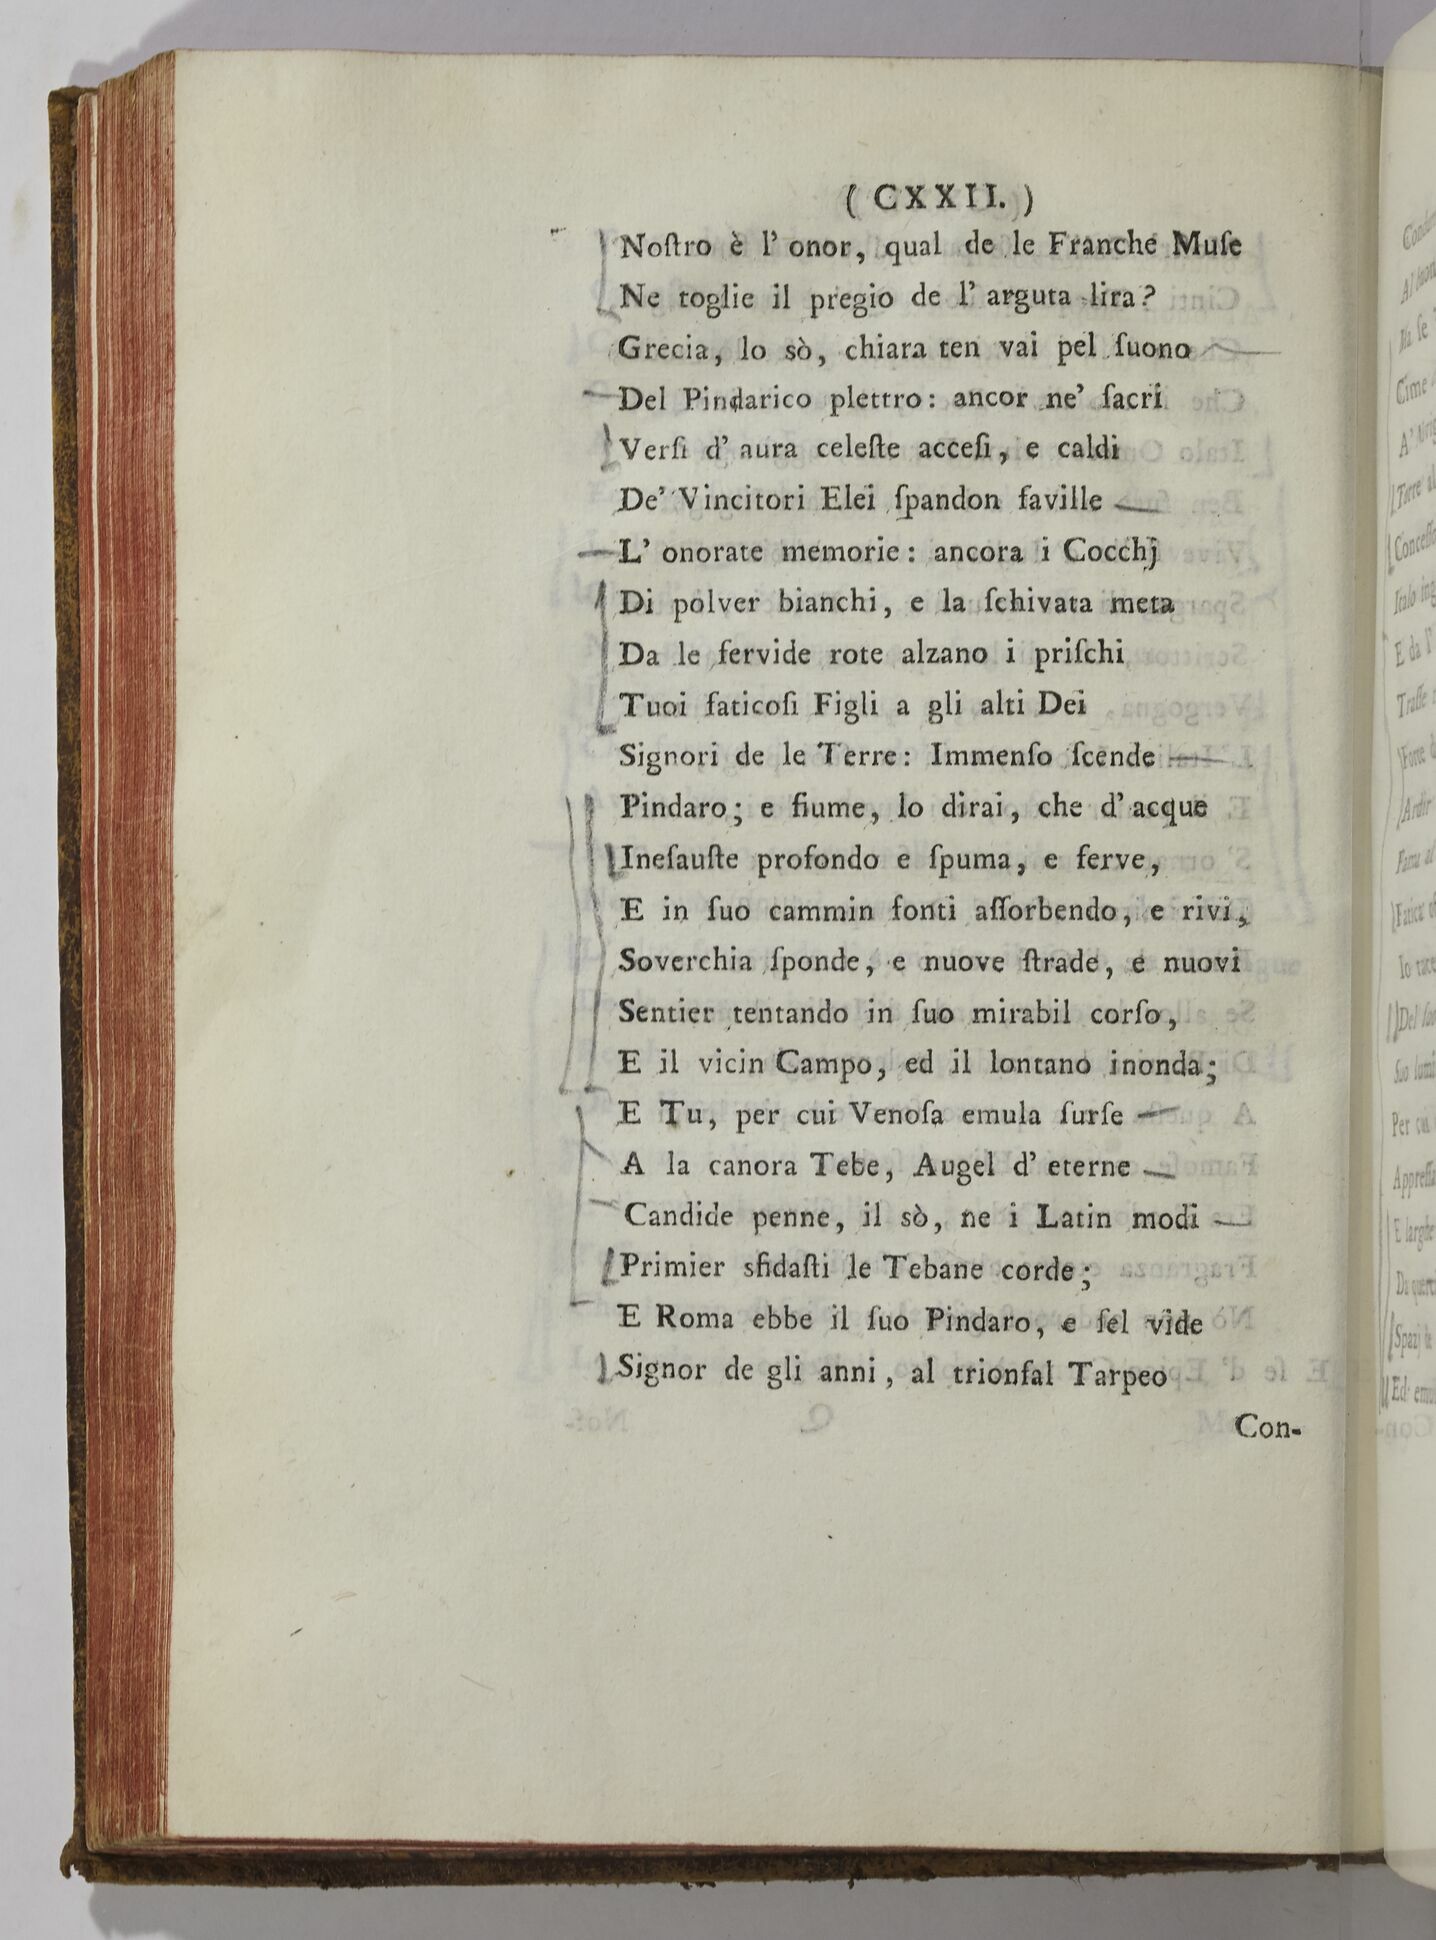 ( CXXII. )
Noſtro è l' onor, qual de le Franche Muſe
Ne toglie il pregio de l' arguta lira?
Grecia, lo sò, chiara ten vai pel ſuono
Del Pindarico plettro: ancor ne' ſacri
Verſi d' aura celeſte acceſi, e caldi
De' Vincitori Elei ſpandon faville
L' onorate memorie: ancora i Cocchj
Di polver bianchi, e la ſchivata meta
Da le fervide rote alzano i priſchi
Tuoi faticoſi Figli a gli alti Dei
Signori de le Terre: Immenſo ſcende
Pindaro; e fiume, lo dirai, che d' acque
Ineſauſte profondo e ſpuma, e ferve,
E in ſuo cammin fonti aſſorbendo, e rivi,
Soverchia ſponde, e nuove ſtrade, e nuovi
Sentier tentando in ſuo mirabil corſo,
E il vicin Campo, ed il lontano inonda;
E Tu, per cui Venoſa emula ſurſe
A la canora Tebe, Augel d' eterne
Candide penne, il sò, ne i Latin modi
Primier sfidaſti le Tebane corde;
E Roma ebbe il ſuo Pindaro, e ſel vide
Signor de gli anni, al trionfal Tarpeo
Con-